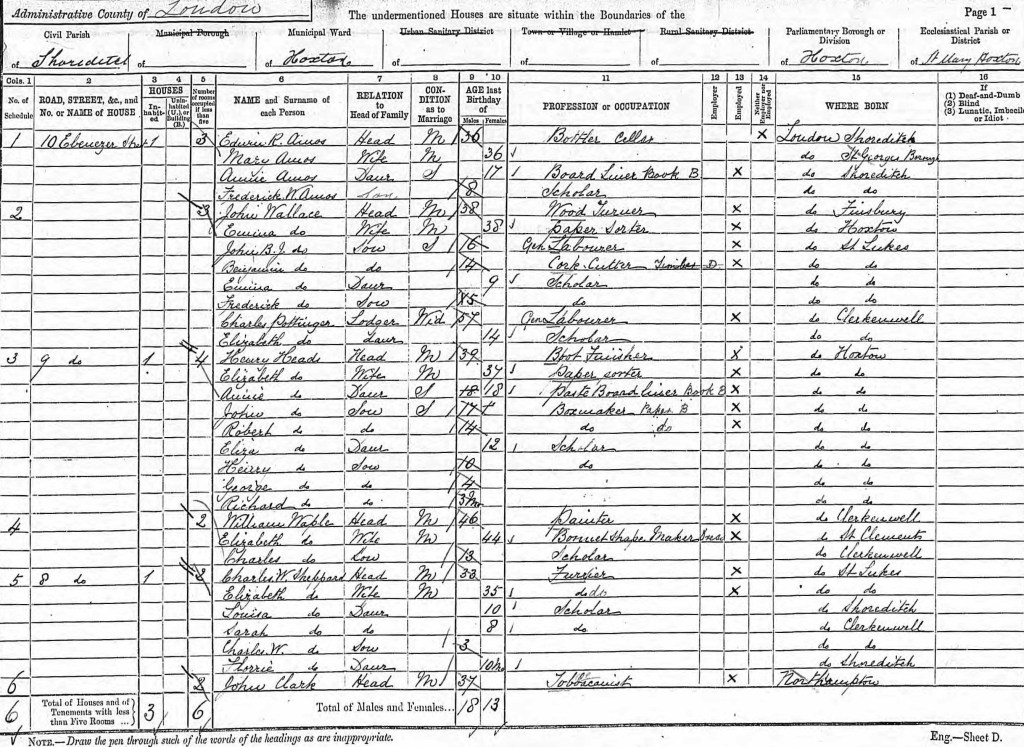 Administrative County of London The undermentioned Houses are situate within the Boundaries of the Page 1
Civil Parish Municipal Borough Municipal Ward Urban Sanitary District Town or Village or Hamlet Rural Sanitary District Parliamentary Borough or Division Ecclesiastical Parish or District
of Shoreditch of of Hoxton of of of of Hoxton of St Mary Hoxton
Cols. 1 2 3 4 5 6 7 8 9 10 11 12 13 14 15 16
No. of Schedule ROAD, STREET, &c., and No. or NAME of HOUSE HOUSES Inhabited Uninhabited (U.), or Building (B.) Number of rooms occupied if less than five NAME and Surname of each Person RELATION to Head of Family CONDITION as to Marriage AGE last Birthday of Males Females PROFESSION or OCCUPATION Employer Employed Neither Employer nor Employed WHERE BORN If (1) Deaf-and-Dumb (2) Blind (3) Lunatic, Imbecile or Idiot
1 10 Ebenezer Street 1 3 Edwin R. Amos Head M 36 Bottler Cellar × London Shoreditch
Mary Amos Wife M 36 do St Georges Borough
Annie Amos Daur S 17 Board Liner Book B × do Shoreditch
Frederick W. Amos Son 8 Scholar do do
2 3 John Wallace Head M 38 Wood Turner × do Finsbury
Emma do Wife M 38 Paper Sorter × do Hoxton
John B. J. do Son S 16 Gen Labourer × do St Lukes
Benjamin do do 14 Cork Cutter D × do do
Emma do Daur 9 Scholar do do
Frederick do Son 5 do do do
Charles Pottinger Lodger Wid 57 Gen Labourer × do Clerkenwell
Elizabeth do daur 14 Scholar do do
3 9 do 1 4 Henry Heads Head M 39 Boot Finisher × do Hoxton
Elizabeth do Wife M 37 Paper sorter × do do
Annie do Daur S 18 18 Paste Board Liner Book B × do do
John do Son S 17 Boxmaker Paper B × do do
Robert do do 14 do do × do do
Eliza do Daur 12 Scholar do do
Henry do Son 10 do do do
George do do 4 do do
Richard do do 3 Mo do do
4 2 William Waple Head M 46 Painter × do Clerkenwell
Elizabeth do Wife M 44 Bonnet Shape Maker × do St Clements
Charles do Son 13 Scholar do Clerkenwell
5 8 do 1 3 Charles W. Sheppard Head M 33 Furrier × do St Lukes
Elizabeth do Wife M 35 do do × do do
Louisa do Daur 10 Scholar do Shoreditch
Sarah do do 8 do do Clerkenwell
Charles W. do Son 3 do do
Florrie do Daur 10 Mo do Shoreditch
6 2 John Clark Head M 37 Tobbacanist × Northampton
6 Total of Houses and of Tenements with less than Five Rooms ... 3 6 Total of Males and Females... 18 13
NOTE.—Draw the pen through such of the words of the headings as are inappropriate. Eng.—Sheet D.